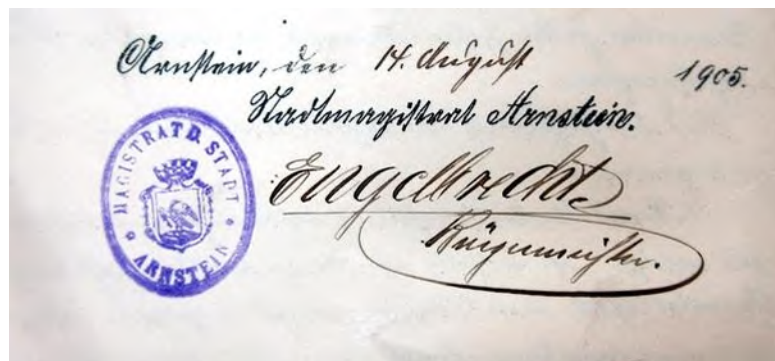 Arnstein, den 14. August 1905.
Stadtmagistrat Arnstein.
Engelbrecht
Bürgermeister.
MAGISTRAT D. STADT
* ARNSTEIN *